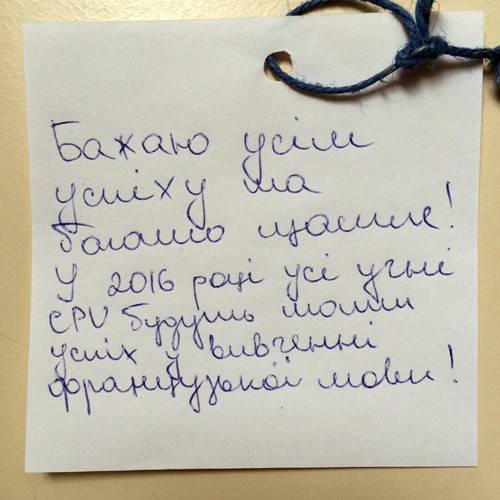 Бажаю усім
успіху та
багато щастя!
У 2016 році усі учні
CPU будуть мати
успіх у вивченні
французької мови!